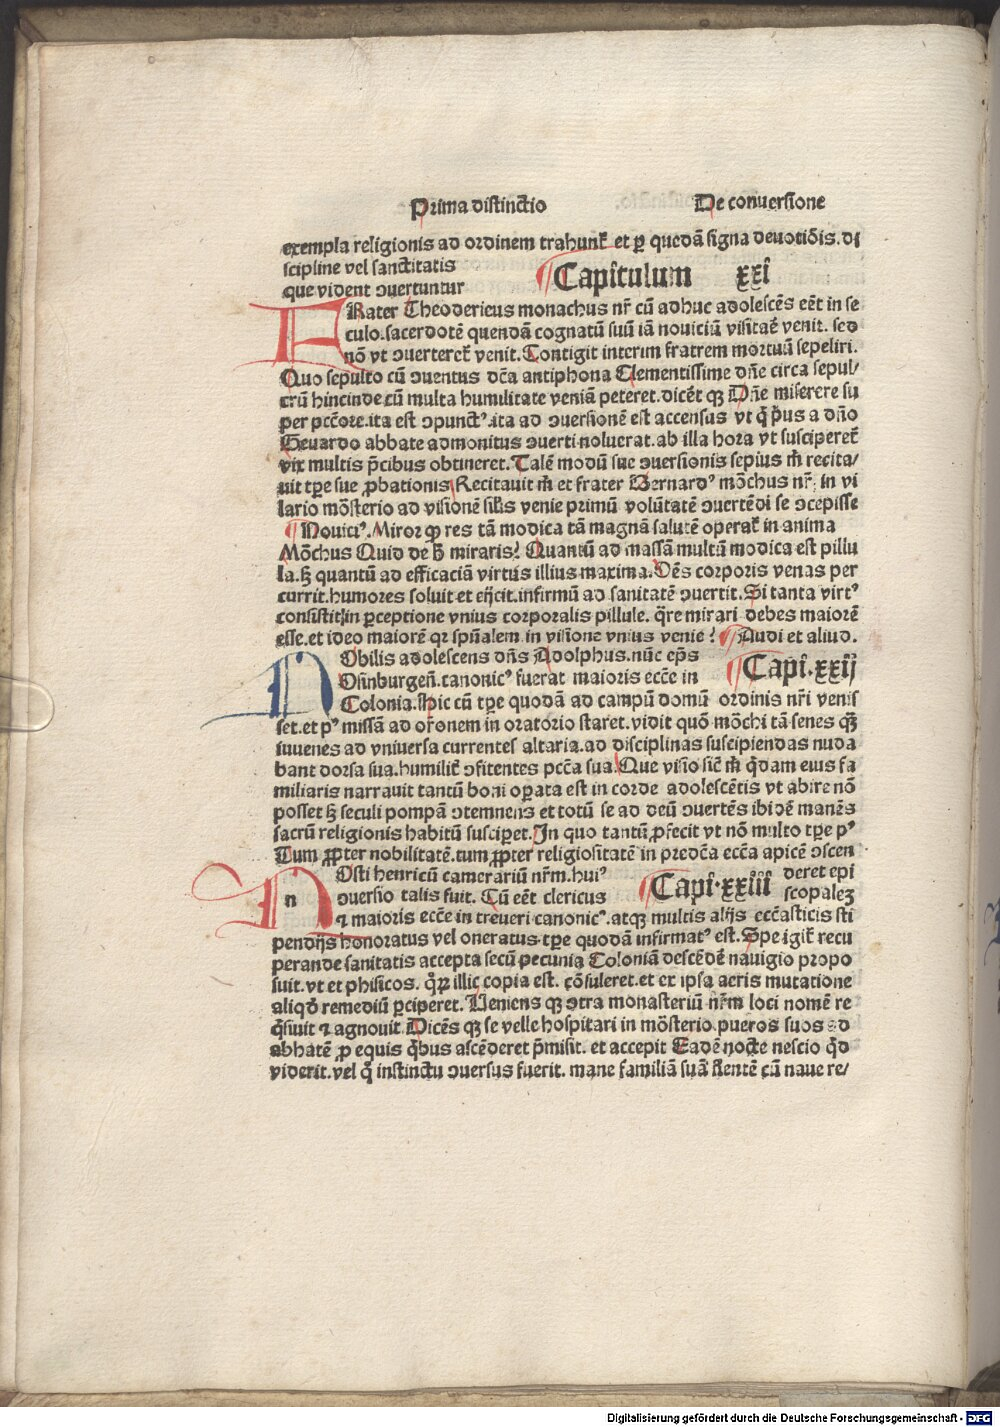 Prima distinctio De conuersione
exempla religionis ad ordinem trahunt᷑ et ꝑ quedā signa deuotiōis. di
scipline vel sanctitatis
que vident ↄuertuntur
Capitulum xxi
FRater Theodericus monachus nr̄ cū adhuc adolescēs eēt in se
culo. sacerdotē quendā cognatū suū iā nouiciū visitaē venit. sed
nō vt ↄuerteret᷑ venit. Contigit interim fratrem mortuū sepeliri.
Quo sepulto cū ↄuentus dc̄a antiphona Clementissime dn̄e circa sepul/
crū hincinde cū multa humilitate veniā peteret. dicēt qꝫ Dn̄e miserere su
per pctōre. ita est ↄpunctꝰ. ita ad ↄuersionē est accensus vt q̄ pͥus a dn̄o
Geuardo abbate admonitus ↄuerti noluerat. ab illa hora vt susciperet᷑
vix multis p̄cibus obtineret. Talē modū sue ↄuersionis sepius m̄ recita/
uit tꝑe sue ꝓbationis Recitauit m̄ et frater Bernardꝰ mōchus nr̄. in vi
lario mōsterio ad visionē sil̄is venie primū volūtatē ↄuertēdi se ↄcepisse
Nouiciꝰ. Miror ꝙ res tā modica tā magnā salutē operat᷑ in anima
Mōchus Quid de h̄ miraris? Quantū ad massā multū modica est pillu
la. sꝫ quantū ad efficaciā virtus illius maxima. Oēs corporis venas per
currit. humores soluit et eijcit. infirmū ad sanitatē ↄuertit. Si tanta virtꝰ
consistit in ꝑceptione vnius corporalis pillule. q̄re mirari debes maiorē
esse. et ideo maiorē qꝛ spūalem in visione vnius venie? Audi et aliud.
NObilis adolescens dn̄s Adolphus. nūc ep̄s
Osinburgeñ. canonicꝰ fuerat maioris ecc̄e in
Colonia. Hic cū tꝑe quodā ad campū domū ordinis nr̄i venis
Capi. xxij
set. et pꝰ missā ad or̄onem in oratorio staret. vidit quō mōchi tā senes qꝫ
iuuenes ad vniuersa currentes altaria. ad disciplinas suscipiendas nuda
bant dorsa sua. humilit᷑ ↄfitentes pctā sua. Que visio sic̄ m̄ q̄dam eius fa
miliaris narrauit tantū boni oꝑata est in corde adolescētis vt abire nō
posset sꝫ seculi pompā ↄtemnens et totū se ad deū ↄuertēs ibidē manēs
sacrū religionis habitū susciꝑet. In quo tantū ꝓfecit vt nō multo tꝑe pꝰ
Tum ꝓpter nobilitatē. tum ꝓpter religiositatē in predc̄a ecc̄a apicē ↄscen
deret epi
scopalez
NOsti henricū camerariū nr̄m. huiꝰ
n ↄuersio talis fuit. Cū eēt clericus
Capi. xxiii
⁊ maioris ecc̄e in treueri canonicꝰ. atqꝫ multis alijs ecc̄asticis sti
pendijs honoratus vel oneratus. tꝑe quodā infirmatꝰ est. Spe igit᷑ recu
perande sanitatis accepta secū pecunia Coloniā descēdē nauigio propo
suit. vt et phisicos. qͦꝝ illic copia est. cōsuleret. et ex ipsa aeris mutatione
aliqd̄ remediū ꝑciperet. Veniens qꝫ ↄtra monasteriū nr̄m loci nomē re
q̄siuit ⁊ agnouit. Dicēs qꝫ se velle hospitari in mōsterio pueros suos ad
abbatē ꝓ equis qͥbus ascēderet p̄misit. et accepit Eadē nocte nescio qͥd
viderit. vel qͦ instinctu ↄuersus fuerit. mane familiā suā flentē cū naue re/
Digitalisierung gefördert durch die Deutsche Forschungsgemeinschaft - DFG